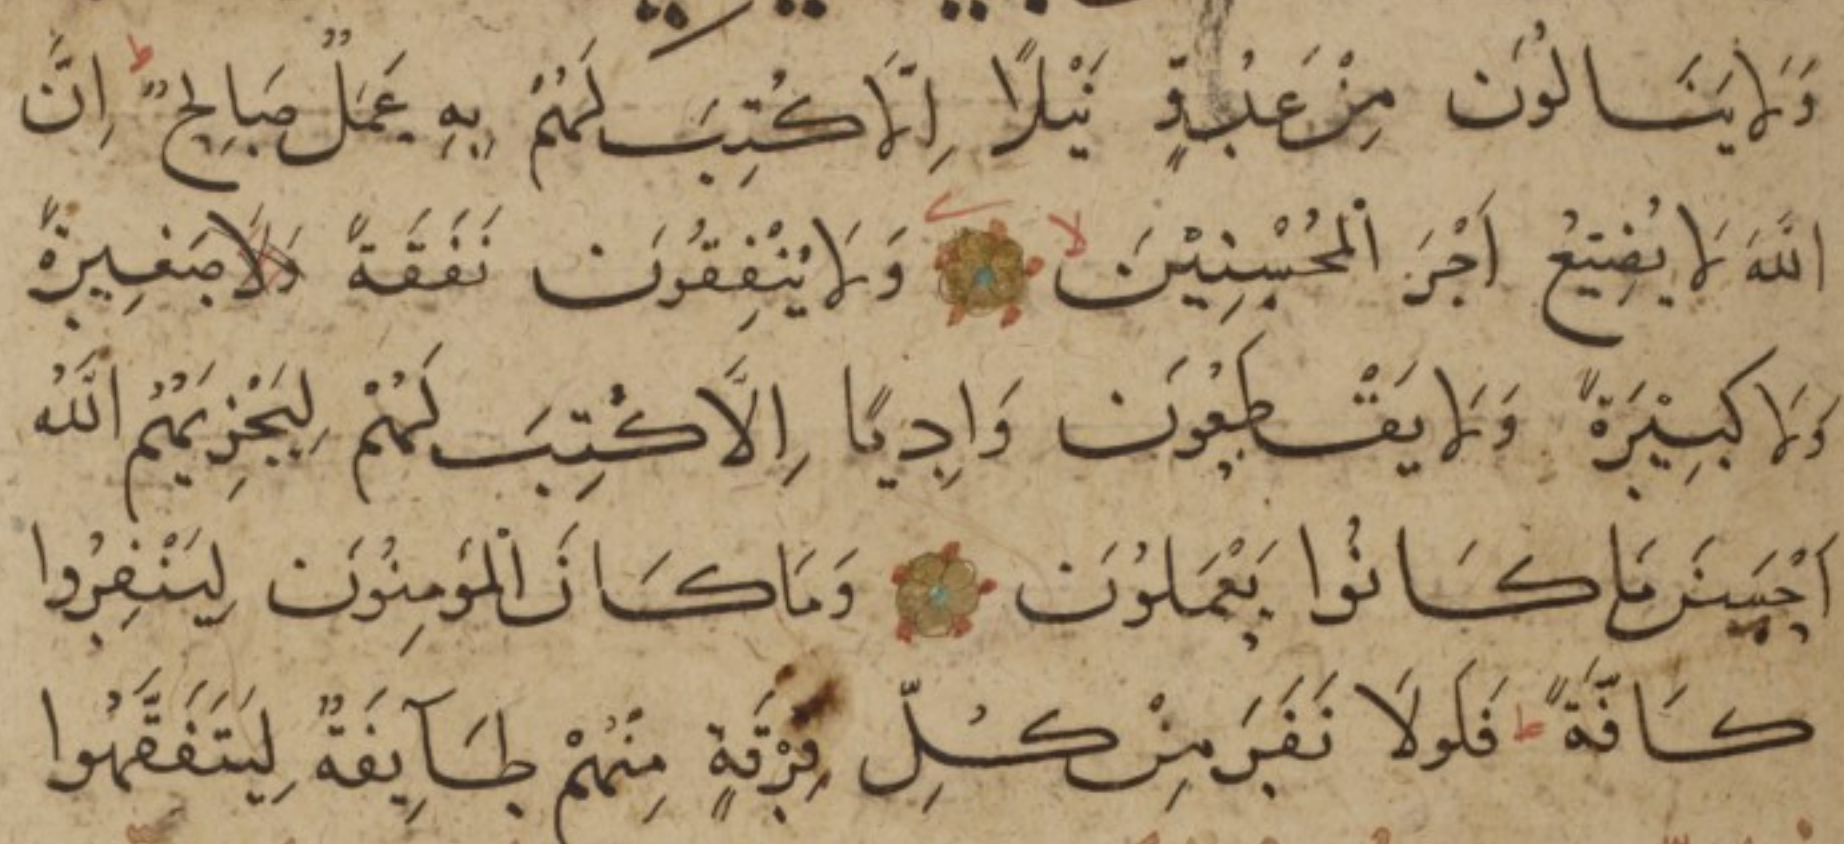 وَلَا يَنَالُونَ مِنْ عَدُوٍّ نَيْلًا اِلَّا كُتِبَ لَهُمْ بِهِ عَمَلٌ صَالِحٌ ط اِنَّ
اللهَ لَا يُضِيْعُ اَجْرَ الْمُحْسِنِيْنَ لا وَلَا يُنْفِقُونَ نَفَقَةً وَلَا صَغِيرَةً
وَلَا كَبِيْرَةً وَلَا يَقْطَعُونَ وَادِيًا اِلَّا كُتِبَ لَهُمْ لِيَجْزِيَهُمُ اللهُ
اَحْسَنَ مَا كَانُوا يَعْمَلُوْنَ وَمَا كَانَ الْمُؤمِنُوْنَ لِيَنْفِرُوا
كَافَّةً ط فَلَولَا نَفَرَ مِنْ كُلِّ فِرْقَةٍ مِنْهُمْ طَآيِفَةٌ لِيَتَفَقَّهُوا